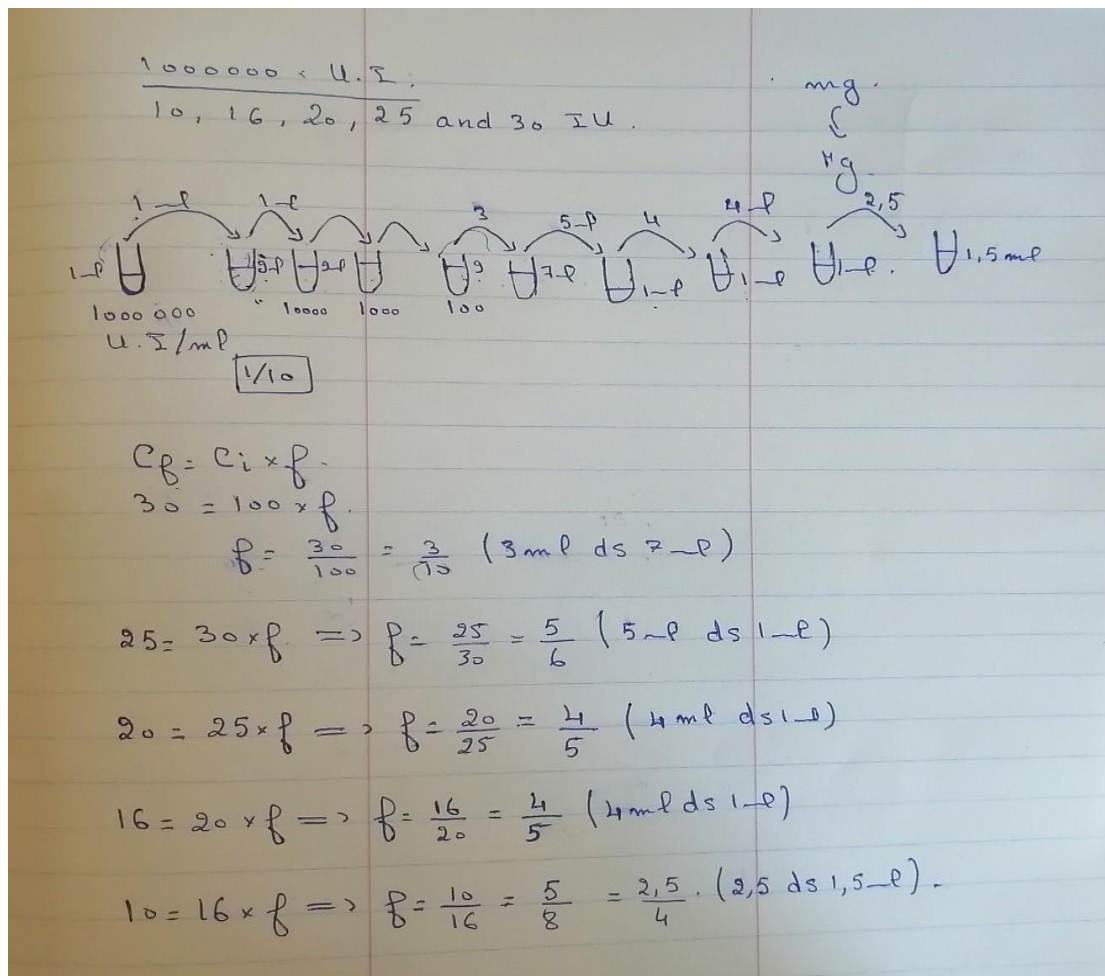 1000000 U.I.
10, 16, 20, 25 and 30 IU.
mg.
µg.
1ml 1ml 3 5ml 4 4ml 2,5
1ml 9ml 9ml 9 7ml 1ml 1ml 1ml. 1,5ml
1000000 " 10000 1000 100
U.I/ml
1/10
Cf = Ci × f.
30 = 100 × f.
f = 30/100 = 3/10 (3ml ds 7ml)
25 = 30 × f => f = 25/30 = 5/6 (5ml ds 1ml)
20 = 25 × f => f = 20/25 = 4/5 (4ml ds 1ml)
16 = 20 × f => f = 16/20 = 4/5 (4ml ds 1ml)
10 = 16 × f => f = 10/16 = 5/8 = 2,5/4. (2,5 ds 1,5ml).